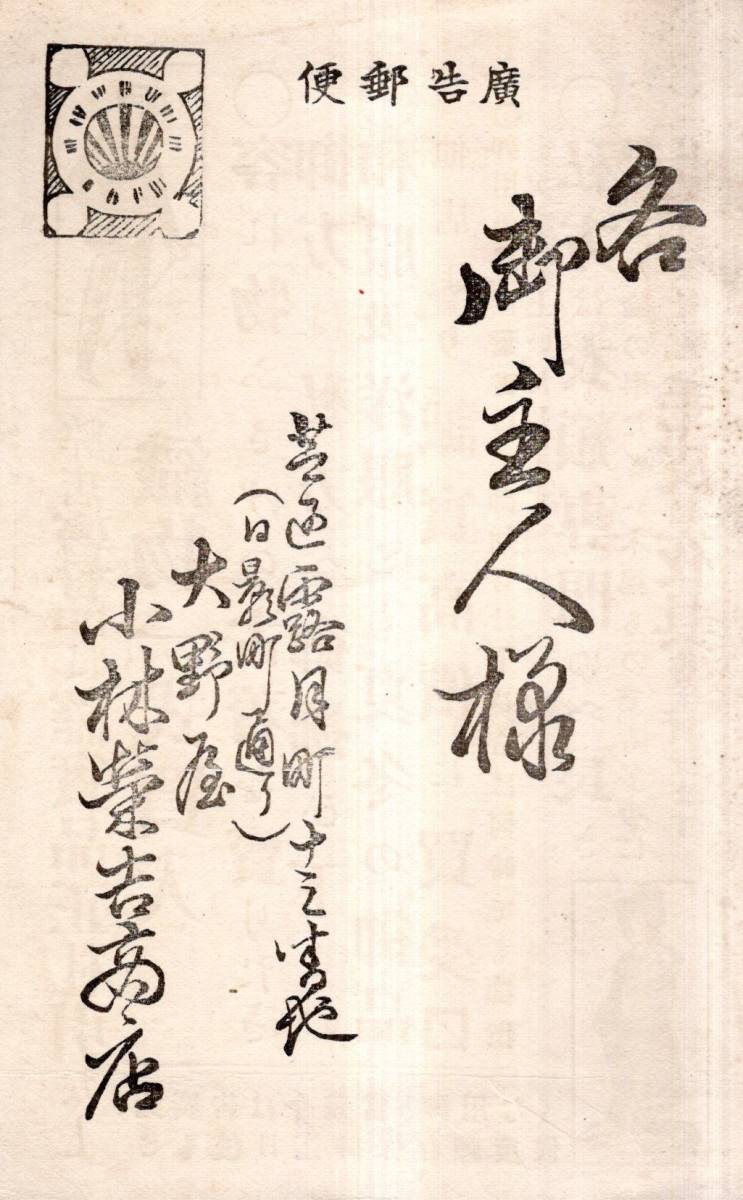 廣告郵便
各
御主人様
芝區露月町十三番地
(日影町通り)
大野屋
小林榮吉商店